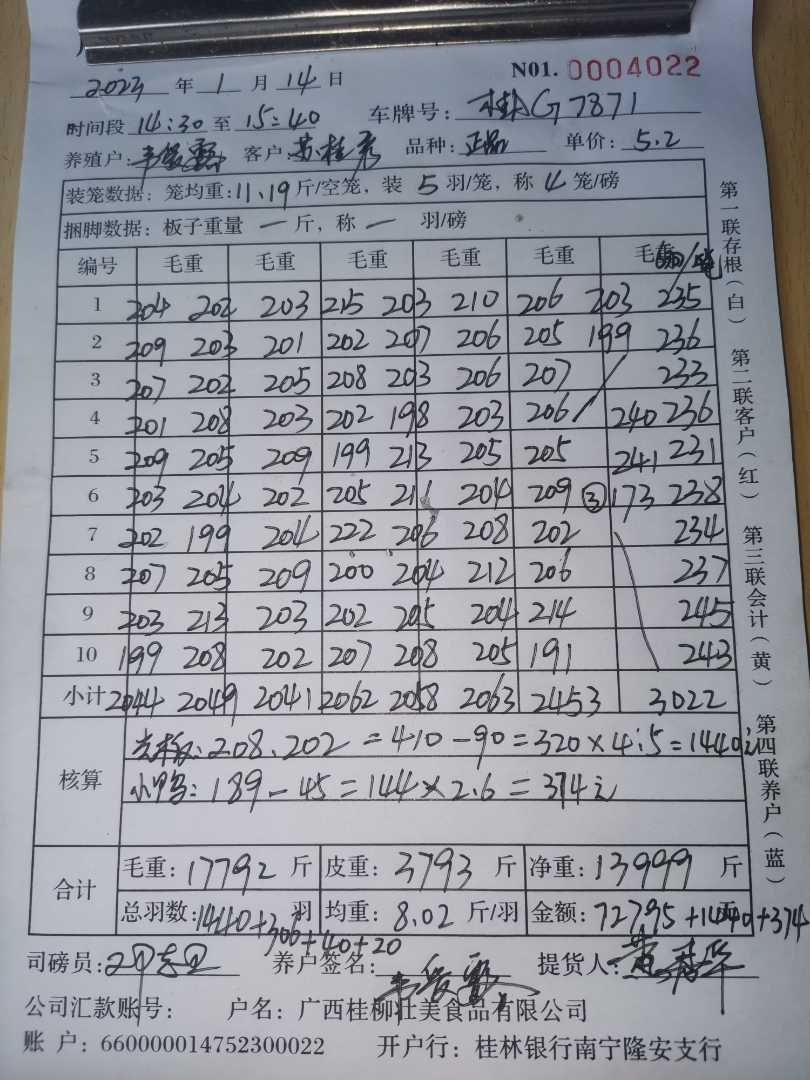 2023 年 1 月 14 日 N01. 0004022
时间段 14:30 至 15:40 车牌号: 桂G7871
养殖户: 客户: 苏桂 品种: 正品 单价: 5.2
装笼数据: 笼均重: 11.19 斤/空笼, 装 5 羽/笼, 称 4 笼/磅
捆脚数据: 板子重量 一 斤, 称 一 羽/磅
编号 毛重 毛重 毛重 毛重 毛重 毛重
1 204 202 203 215 203 210 206 203 235
2 209 203 201 202 207 206 205 199 236
3 207 202 205 208 203 206 207 / 233
4 201 208 203 202 198 203 206 / 240 236
5 209 205 209 199 213 205 205 241 231
6 203 204 202 205 211 204 209 ③173 238
7 202 199 204 222 206 208 202 234
8 207 205 209 200 204 212 206 237
9 203 213 203 202 205 204 214 245
10 199 208 202 207 208 205 191 243
小计 2044 2049 2041 2062 2058 2063 2453 3022
核算
208.202=410-90=320×4.5=1440元
小鸭: 189-45=144×2.6=374元
合计
毛重: 17792 斤 皮重: 3793 斤 净重: 13999 斤
总羽数: 1440+306+40+20 羽 均重: 8.02 斤/羽 金额: 72795+1440+374 元
司磅员: 养户签名: 提货人:
公司汇款账号: 户名: 广西桂柳壮美食品有限公司
账 户: 660000014752300022 开户行: 桂林银行南宁隆安支行
第一联存根(白) 第二联客户(红) 第三联会计(黄) 第四联养户(蓝)